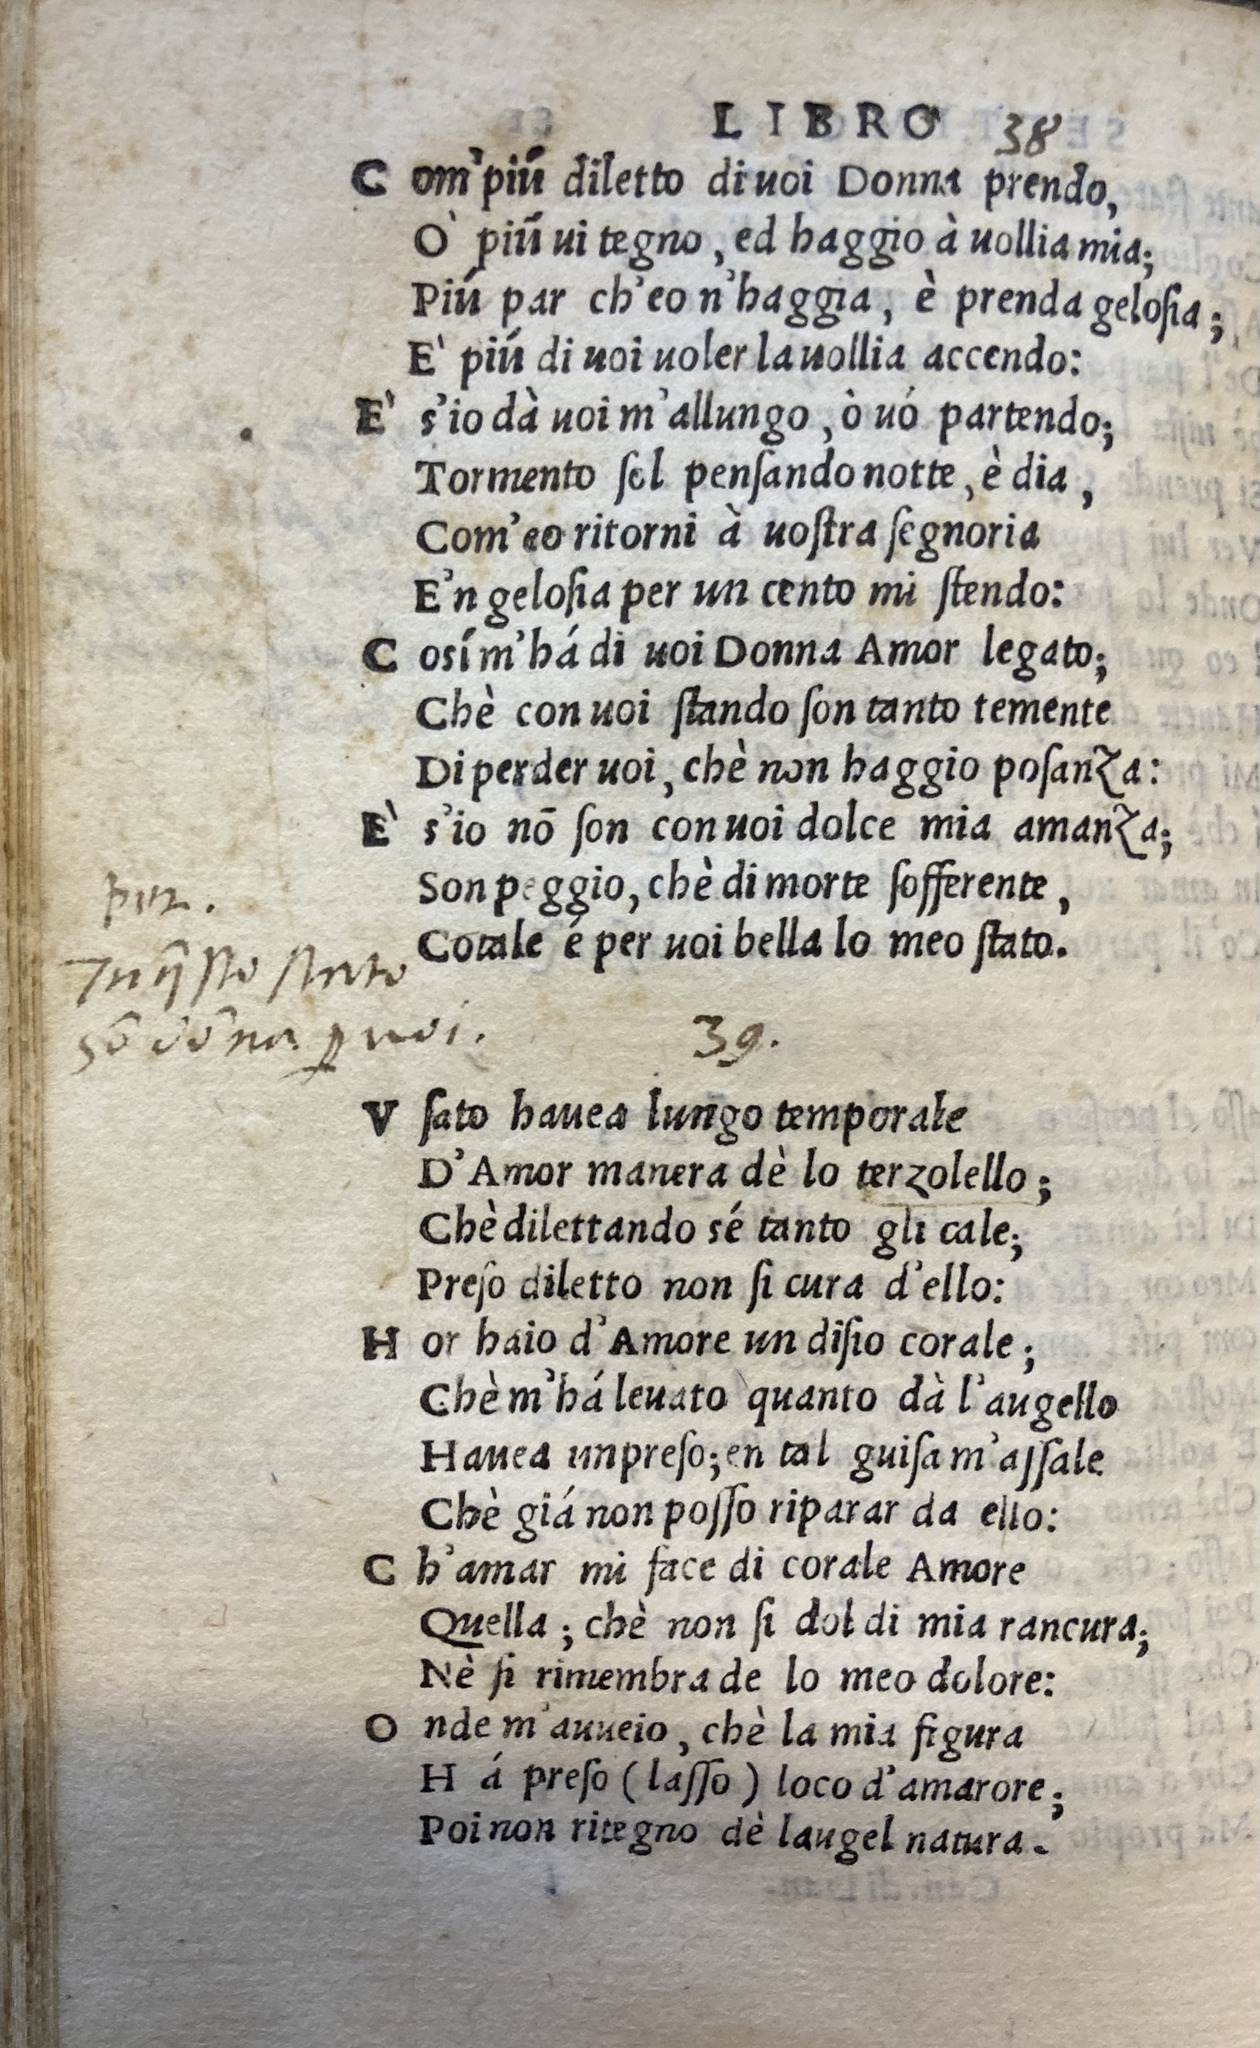 LIBRO 38
Com' piú diletto di uoi Donna prendo,
O' piú ui tegno, ed haggio à uollia mia;
Piú par ch'eo n'haggia, è prenda gelosia;
E' piú di uoi uoler la uollia accendo:
E' s'io dà uoi m'allungo, ò uó partendo;
Tormento sol pensando notte, è dia,
Com'eo ritorni à uostra segnoria
E'n gelosia per un cento mi stendo:
Cosí m'há di uoi Donna Amor legato;
Chè con uoi stando son tanto temente
Di perder uoi, chè non haggio posanza:
E' s'io nō son con uoi dolce mia amanza;
Son peggio, chè di morte sofferente,
Cotale é per uoi bella lo meo stato.
In q̄sto stato
sō dōna ꝑ uoi.
39.
Vsato hauea lungo temporale
D'Amor manera dè lo terzolello;
Chè dilettando sé tanto gli cale;
Preso diletto non si cura d'ello:
Hor haio d'Amore un disio corale;
Chè m'há leuato quanto dà l'augello
Hauea unpreso; en tal guisa m'assale
Chè giá non posso riparar da ello:
Ch'amar mi face di corale Amore
Quella; chè non si dol di mia rancura;
Nè si rimembra de lo meo dolore:
Onde m'auueio, chè la mia figura
Há preso (lasso) loco d'amarore;
Poi non ritegno dè laugel natura.